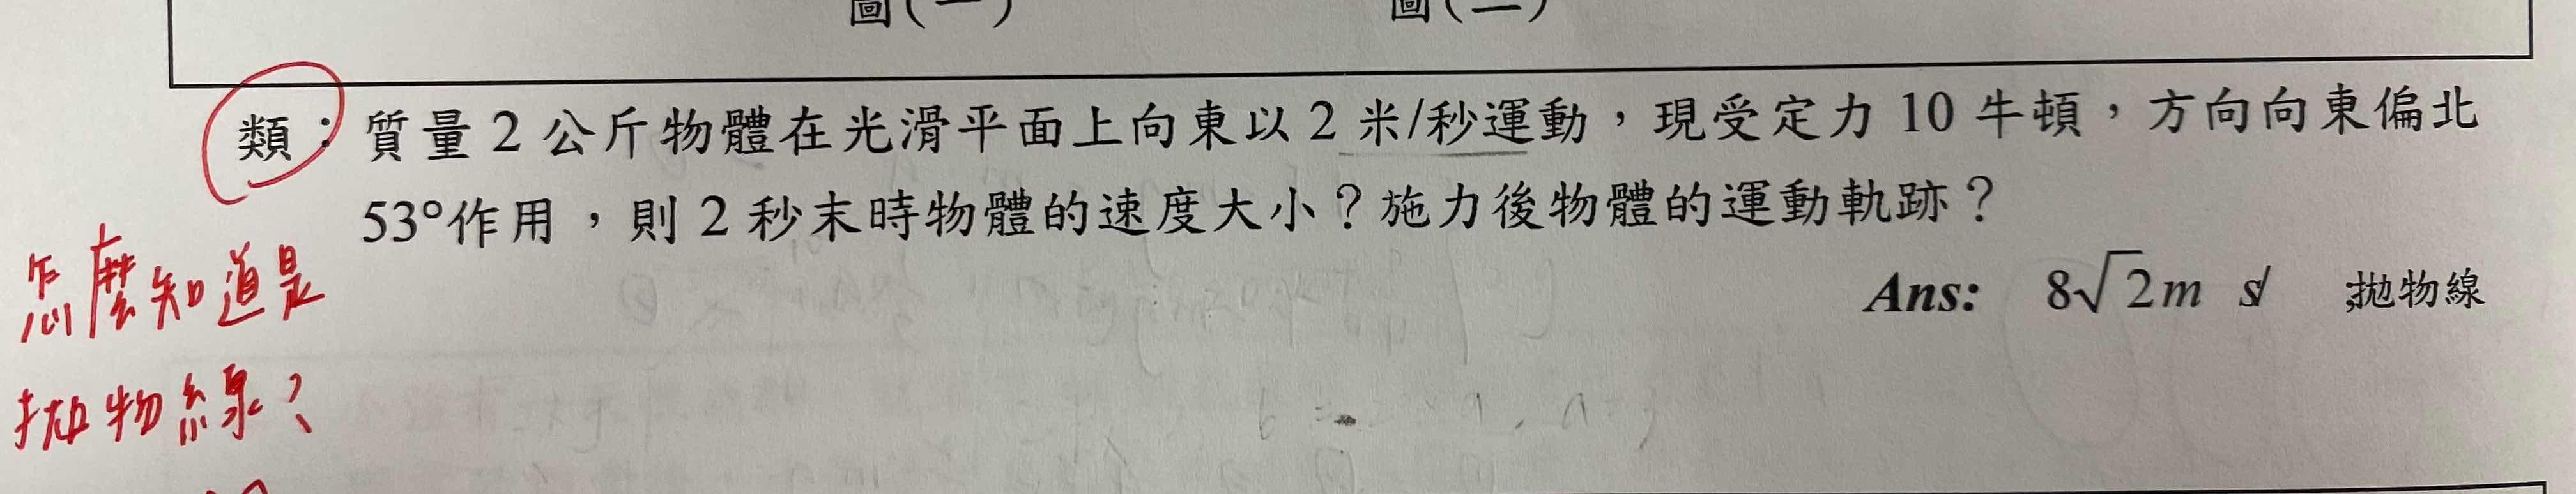 圖(一) 圖(二)
類：質量 2 公斤物體在光滑平面上向東以 2 米/秒運動，現受定力 10 牛頓，方向向東偏北
53°作用，則 2 秒末時物體的速度大小？施力後物體的運動軌跡？
怎麼知道是
拋物線？
Ans: 8√2 m s/ ;拋物線